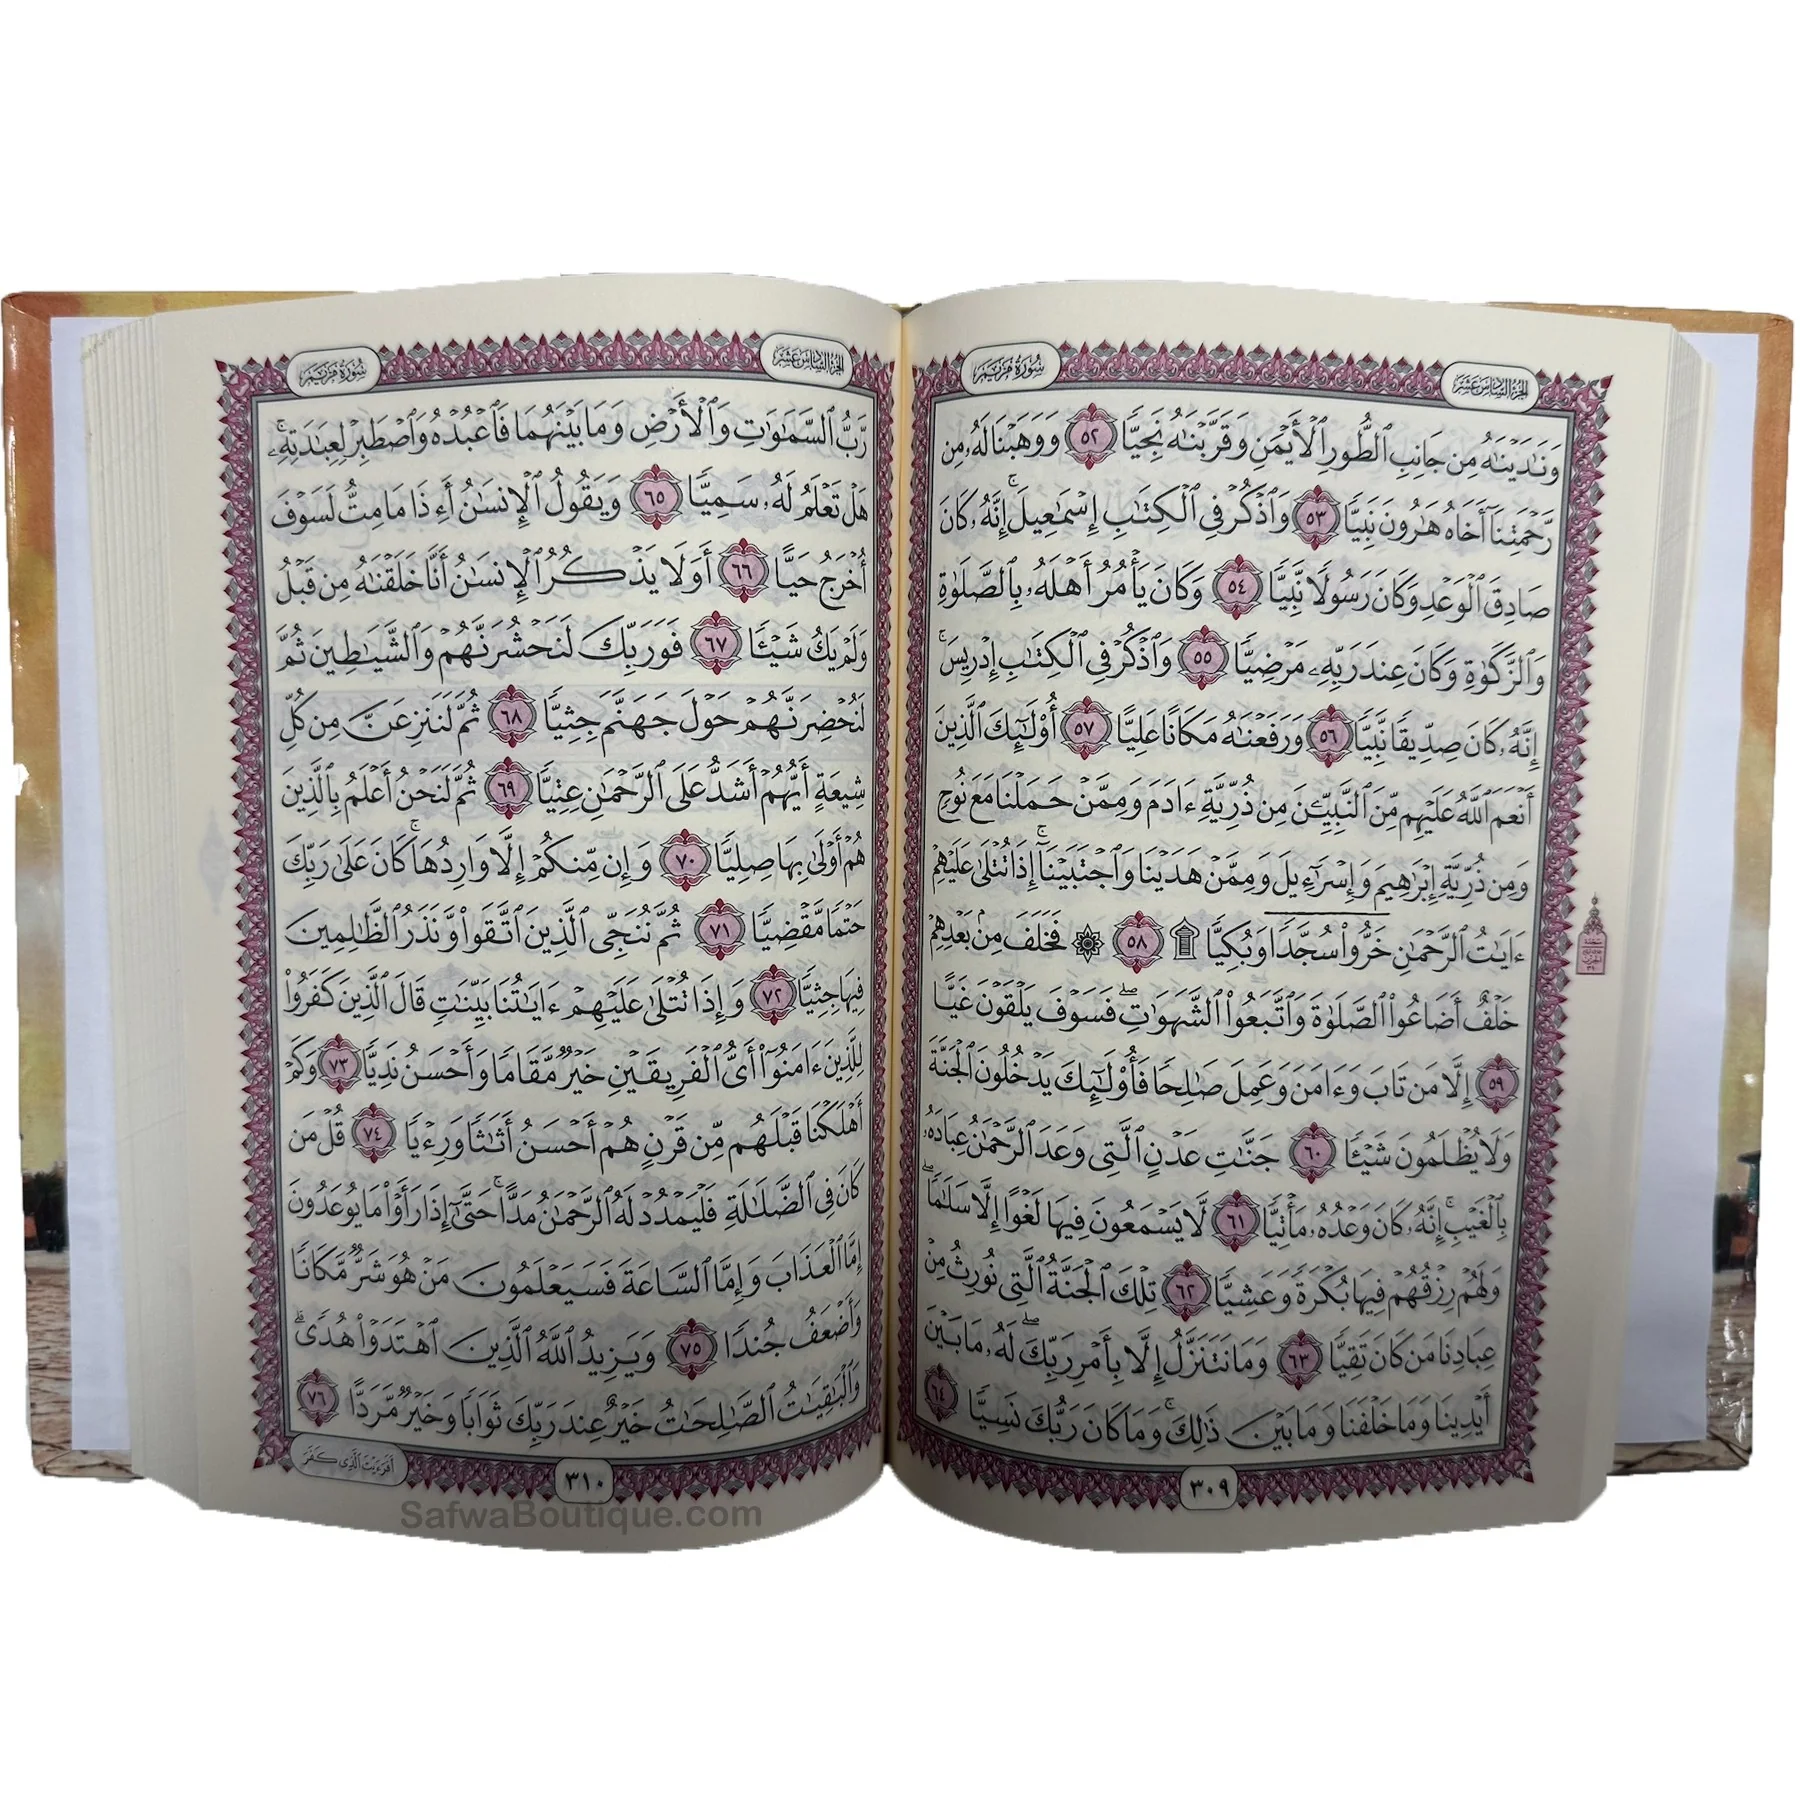 الجزء السادس عشر
سورة مريم
وَنَٰدَيْنَٰهُ مِن جَانِبِ ٱلطُّورِ ٱلْأَيْمَنِ وَقَرَّبْنَٰهُ نَجِيًّا ٥٢ وَوَهَبْنَا لَهُۥ مِن
رَّحْمَتِنَآ أَخَاهُ هَٰرُونَ نَبِيًّا ٥٣ وَٱذْكُرْ فِى ٱلْكِتَٰبِ إِسْمَٰعِيلَ ۚ إِنَّهُۥ كَانَ
صَادِقَ ٱلْوَعْدِ وَكَانَ رَسُولًا نَّبِيًّا ٥٤ وَكَانَ يَأْمُرُ أَهْلَهُۥ بِٱلصَّلَوٰةِ
وَٱلزَّكَوٰةِ وَكَانَ عِندَ رَبِّهِۦ مَرْضِيًّا ٥٥ وَٱذْكُرْ فِى ٱلْكِتَٰبِ إِدْرِيسَ ۚ
إِنَّهُۥ كَانَ صِدِّيقًا نَّبِيًّا ٥٦ وَرَفَعْنَٰهُ مَكَانًا عَلِيًّا ٥٧ أُو۟لَٰٓئِكَ ٱلَّذِينَ
أَنْعَمَ ٱللَّهُ عَلَيْهِم مِّنَ ٱلنَّبِيِّـۧنَ مِن ذُرِّيَّةِ ءَادَمَ وَمِمَّنْ حَمَلْنَا مَعَ نُوحٍ
وَمِن ذُرِّيَّةِ إِبْرَٰهِيمَ وَإِسْرَٰٓءِيلَ وَمِمَّنْ هَدَيْنَا وَٱجْتَبَيْنَآ ۚ إِذَا تُتْلَىٰ عَلَيْهِمْ
ءَايَٰتُ ٱلرَّحْمَٰنِ خَرُّوا۟ سُجَّدًا وَبُكِيًّا ۩ ٥٨ ۞ فَخَلَفَ مِنۢ بَعْدِهِمْ
خَلْفٌ أَضَاعُوا۟ ٱلصَّلَوٰةَ وَٱتَّبَعُوا۟ ٱلشَّهَوَٰتِ ۖ فَسَوْفَ يَلْقَوْنَ غَيًّا
٥٩ إِلَّا مَن تَابَ وَءَامَنَ وَعَمِلَ صَٰلِحًا فَأُو۟لَٰٓئِكَ يَدْخُلُونَ ٱلْجَنَّةَ
وَلَا يُظْلَمُونَ شَيْـًٔا ٦٠ جَنَّٰتِ عَدْنٍ ٱلَّتِى وَعَدَ ٱلرَّحْمَٰنُ عِبَادَهُۥ
بِٱلْغَيْبِ ۚ إِنَّهُۥ كَانَ وَعْدُهُۥ مَأْتِيًّا ٦١ لَّا يَسْمَعُونَ فِيهَا لَغْوًا إِلَّا سَلَٰمًا ۖ
وَلَهُمْ رِزْقُهُمْ فِيهَا بُكْرَةً وَعَشِيًّا ٦٢ تِلْكَ ٱلْجَنَّةُ ٱلَّتِى نُورِثُ مِنْ
عِبَادِنَا مَن كَانَ تَقِيًّا ٦٣ وَمَا نَتَنَزَّلُ إِلَّا بِأَمْرِ رَبِّكَ ۖ لَهُۥ مَا بَيْنَ
أَيْدِينَا وَمَا خَلْفَنَا وَمَا بَيْنَ ذَٰلِكَ ۚ وَمَا كَانَ رَبُّكَ نَسِيًّا ٦٤
٣٠٩
الجزء السادس عشر
سورة مريم
رَّبُّ ٱلسَّمَٰوَٰتِ وَٱلْأَرْضِ وَمَا بَيْنَهُمَا فَٱعْبُدْهُ وَٱصْطَبِرْ لِعِبَٰدَتِهِۦ ۚ
هَلْ تَعْلَمُ لَهُۥ سَمِيًّا ٦٥ وَيَقُولُ ٱلْإِنسَٰنُ أَءِذَا مَا مِتُّ لَسَوْفَ
أُخْرَجُ حَيًّا ٦٦ أَوَلَا يَذْكُرُ ٱلْإِنسَٰنُ أَنَّا خَلَقْنَٰهُ مِن قَبْلُ
وَلَمْ يَكُ شَيْـًٔا ٦٧ فَوَرَبِّكَ لَنَحْشُرَنَّهُمْ وَٱلشَّيَٰطِينَ ثُمَّ
لَنُحْضِرَنَّهُمْ حَوْلَ جَهَنَّمَ جِثِيًّا ٦٨ ثُمَّ لَنَنزِعَنَّ مِن كُلِّ
شِيعَةٍ أَيُّهُمْ أَشَدُّ عَلَى ٱلرَّحْمَٰنِ عِتِيًّا ٦٩ ثُمَّ لَنَحْنُ أَعْلَمُ بِٱلَّذِينَ
هُمْ أَوْلَىٰ بِهَا صِلِيًّا ٧٠ وَإِن مِّنكُمْ إِلَّا وَارِدُهَا ۚ كَانَ عَلَىٰ رَبِّكَ
حَتْمًا مَّقْضِيًّا ٧١ ثُمَّ نُنَجِّى ٱلَّذِينَ ٱتَّقَوا۟ وَّنَذَرُ ٱلظَّٰلِمِينَ
فِيهَا جِثِيًّا ٧٢ وَإِذَا تُتْلَىٰ عَلَيْهِمْ ءَايَٰتُنَا بَيِّنَٰتٍ قَالَ ٱلَّذِينَ كَفَرُوا۟
لِلَّذِينَ ءَامَنُوٓا۟ أَىُّ ٱلْفَرِيقَيْنِ خَيْرٌ مَّقَامًا وَأَحْسَنُ نَدِيًّا ٧٣ وَكَمْ
أَهْلَكْنَا قَبْلَهُم مِّن قَرْنٍ هُمْ أَحْسَنُ أَثَٰثًا وَرِءْيًا ٧٤ قُلْ مَن
كَانَ فِى ٱلضَّلَٰلَةِ فَلْيَمْدُدْ لَهُ ٱلرَّحْمَٰنُ مَدًّا ۚ حَتَّىٰٓ إِذَا رَأَوْا۟ مَا يُوعَدُونَ
إِمَّا ٱلْعَذَابَ وَإِمَّا ٱلسَّاعَةَ فَسَيَعْلَمُونَ مَنْ هُوَ شَرٌّ مَّكَانًا
وَأَضْعَفُ جُندًا ٧٥ وَيَزِيدُ ٱللَّهُ ٱلَّذِينَ ٱهْتَدَوْا۟ هُدًى ۗ
وَٱلْبَٰقِيَٰتُ ٱلصَّٰلِحَٰتُ خَيْرٌ عِندَ رَبِّكَ ثَوَابًا وَخَيْرٌ مَّرَدًّا ٧٦
أَفَرَءَيْتَ ٱلَّذِى كَفَرَ
٣١٠
SafwaBoutique.com